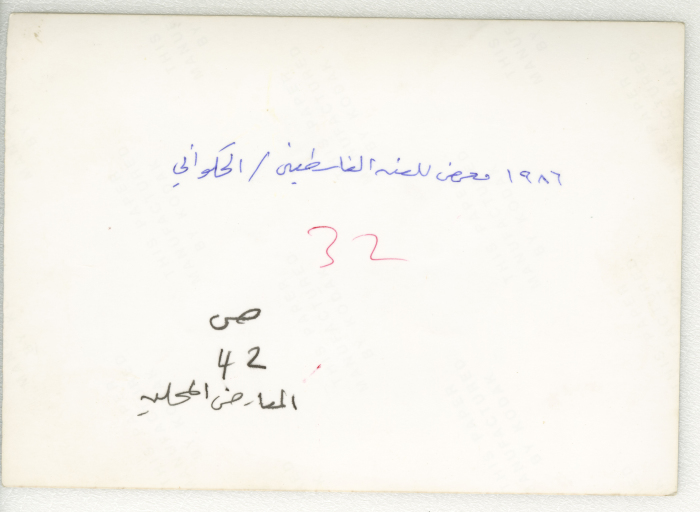 ١٩٨٦ معرض للفن الفلسطيني / الحكواتي
32
ص
42
المعارض المحليه